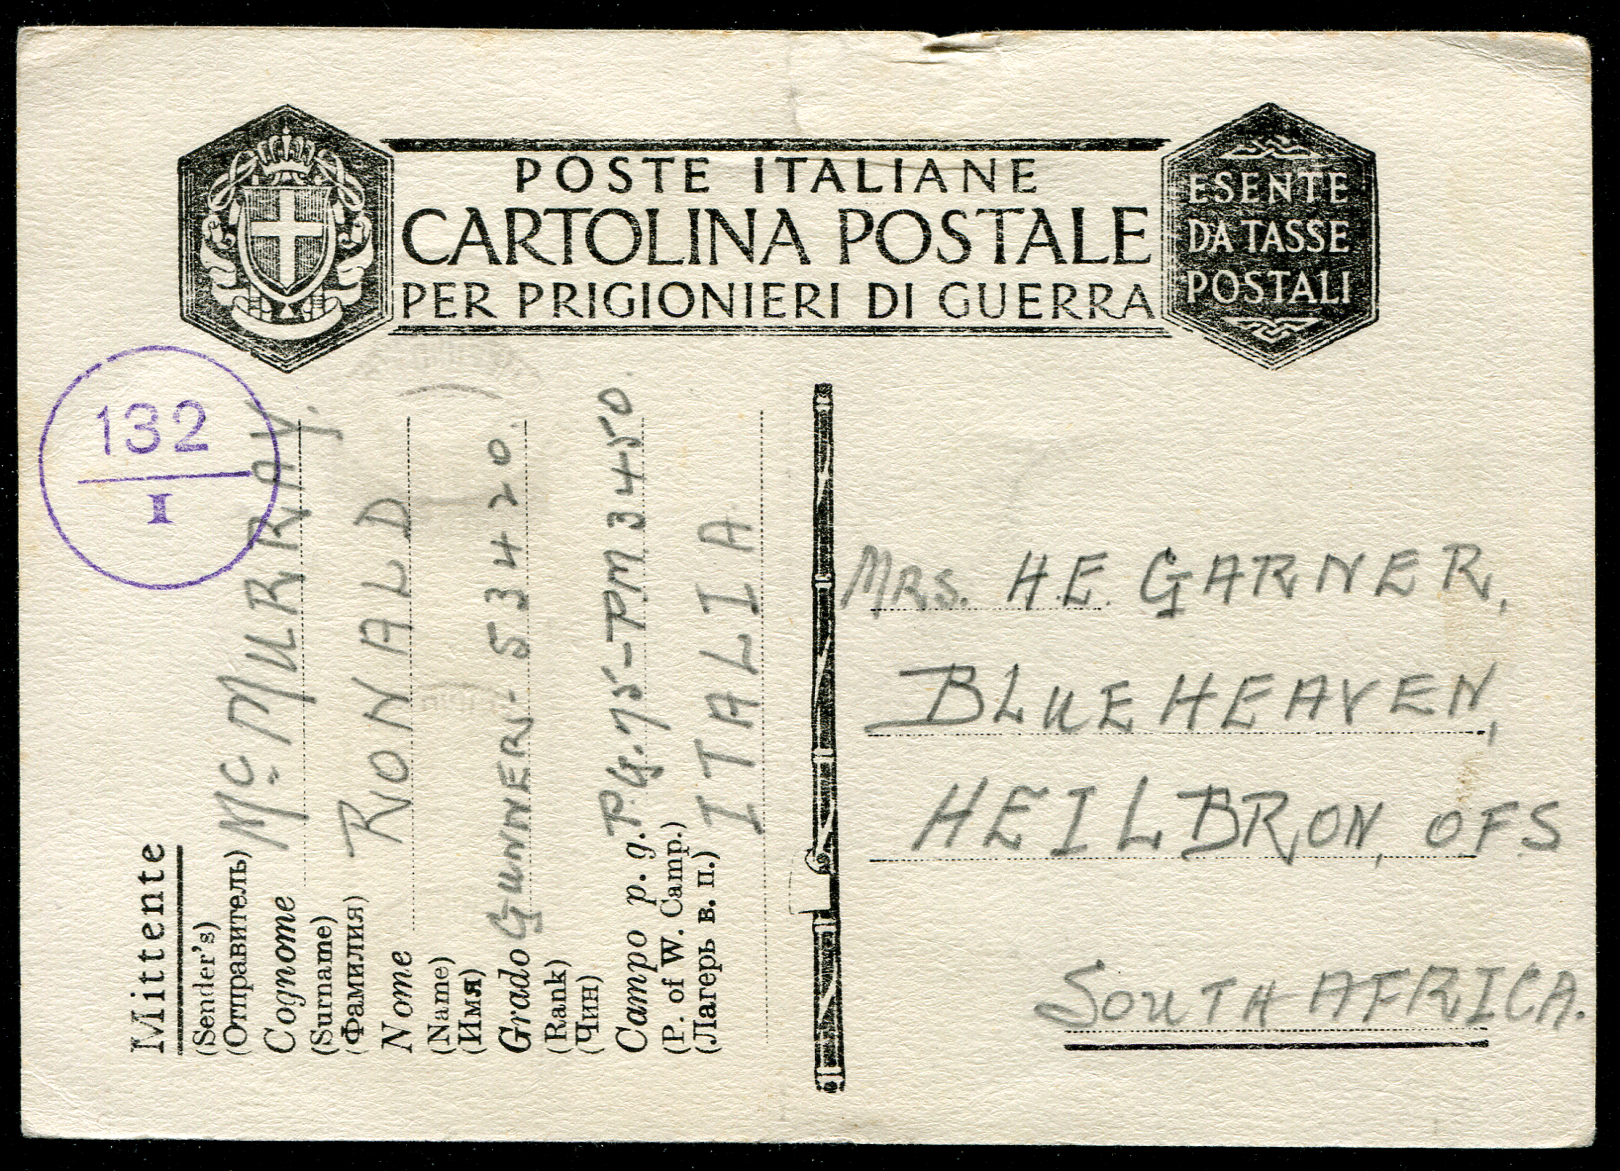 POSTE ITALIANE
CARTOLINA POSTALE
PER PRIGIONIERI DI GUERRA
ESENTE
DA TASSE
POSTALI
132
I
Mittente
(Sender's)
(Отправитель)
Cognome Mc MURRAY.
(Surname)
(Фамилия)
Nome RONALD
(Name)
(Имя)
Grado GUNNER - 53420.
(Rank)
(Чин)
Campo p. g. P.G. 75 - PM 3450.
(P. of W. Camp.)
(Лагерь в. п.) ITALIA
MRS. H.E. GARNER,
BLUE HEAVEN,
HEILBRON, OFS
SOUTH AFRICA.